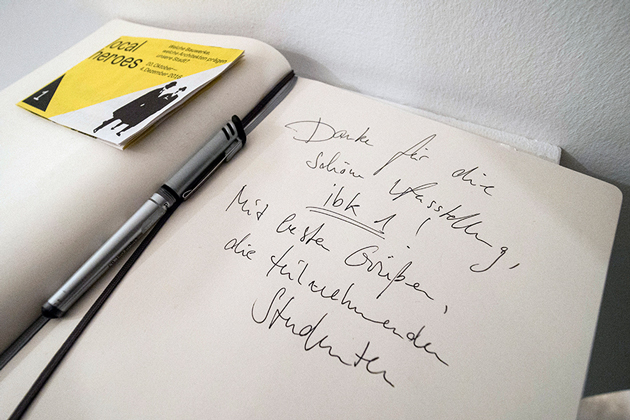 local
heroes
Welche Bauwerke,
welche Architekten prägen
unsere Stadt?
20. Oktober—
4. Dezember 2016
1
Danke für die
schöne Ausstellung,
ibk 1!
Mit besten Grüßen,
die teilnehmenden
Studenten